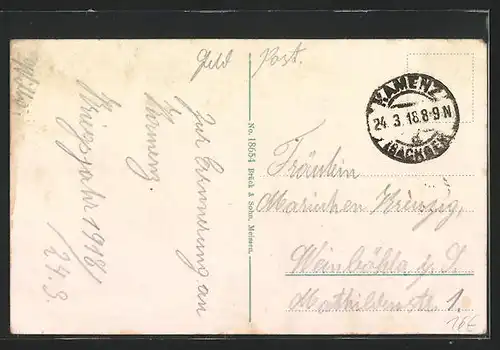 Feld Post.
KAMENZ
24.3.18.8-9N
(SACHSEN)
Zur Erinnerung an
Kamenz.
Kriegsjahr 1918
24.3.
No. 18654 Brück & Sohn, Meissen.
Fräulein
Mariechen
Weinböhla
Mathildenstr 1.
16E